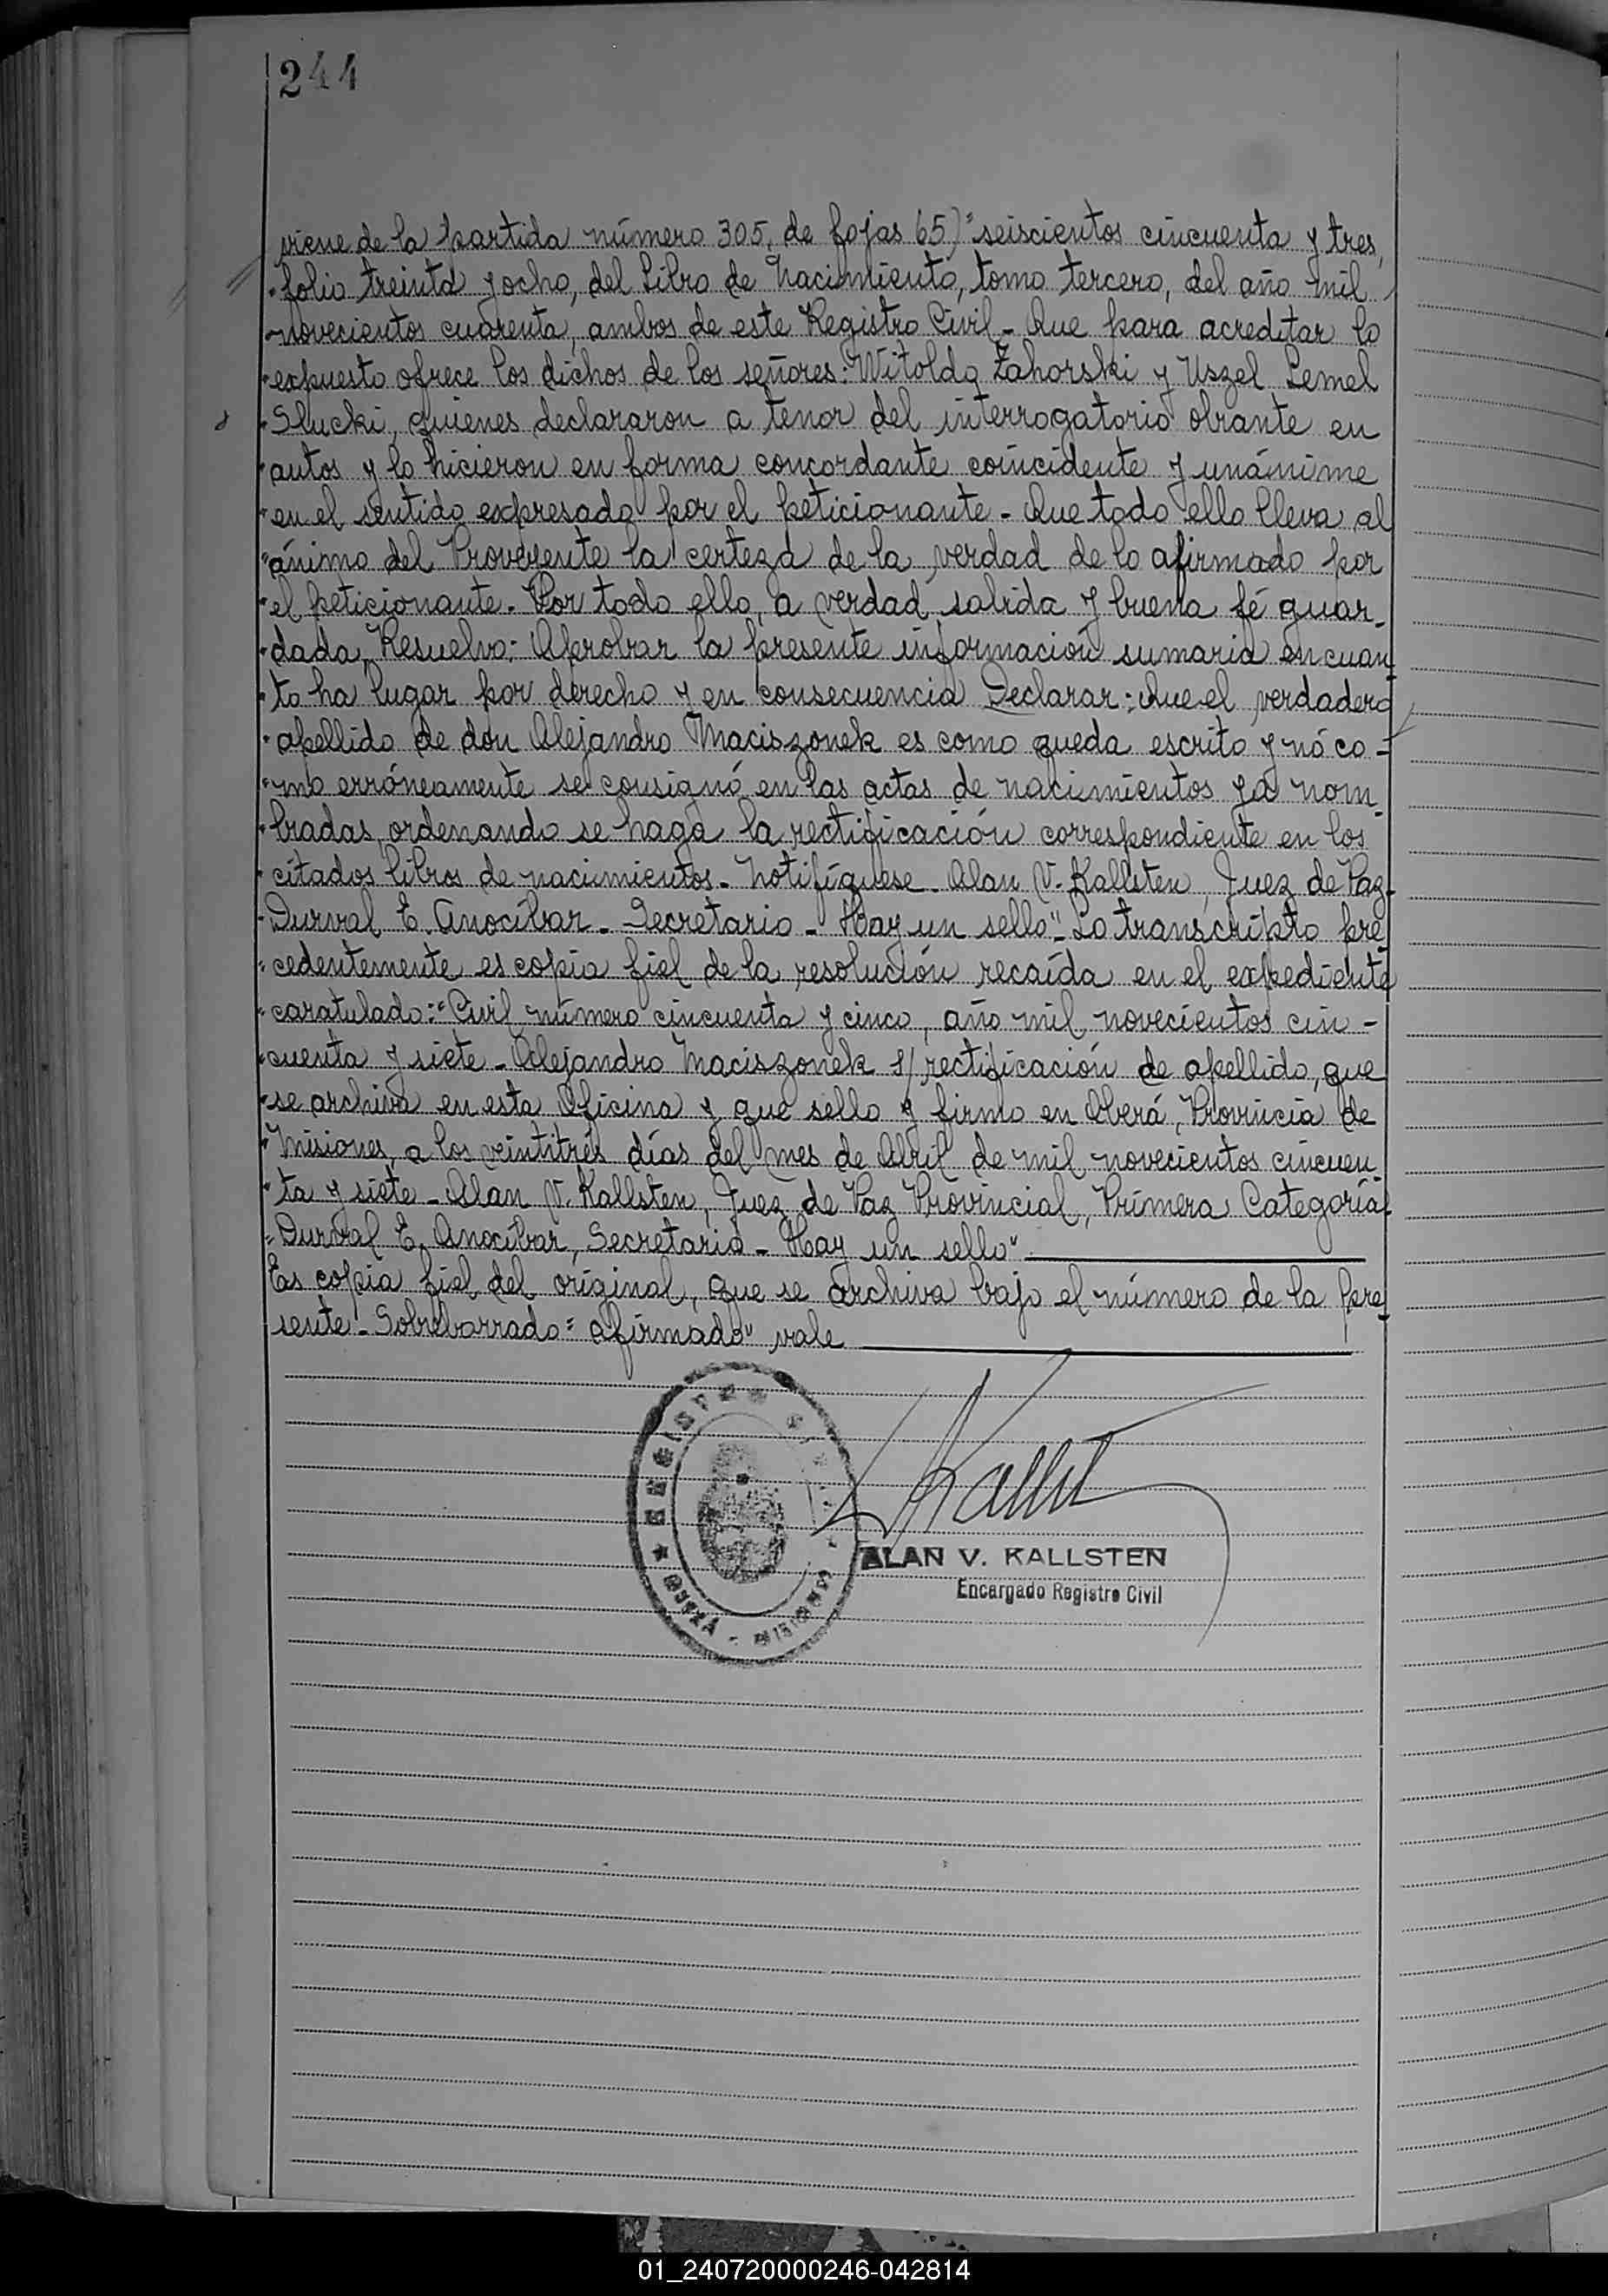 244
viene de la partida número 305, de fojas 65)" seiscientos cincuenta y tres,
"folio treinta y ocho, del Libro de Nacimiento, tomo tercero, del año mil
"novecientos cuarenta, ambos de este Registro Civil - Que para acreditar lo
"expuesto ofrece los dichos de los señores: Witoldo Zahorski y Uszel Lemel
"Slucki, quienes declararon a tenor del interrogatorio obrante en
"autos y lo hicieron en forma concordante coincidente y unánime
"en el sentido expresado por el peticionante - Que todo ello lleva al
"ánimo del Proveyente la certeza de la verdad de lo afirmado por
"el peticionante. Por todo ello, a verdad sabida y buena fé guar-
"dada, Resuelvo: Aprobar la presente información sumaria en cuan-
"to ha lugar por derecho y en consecuencia Declarar: Que el verdadero
"apellido de don Alejandro Maciszonek es como queda escrito y nó co-
"mo erróneamente se consignó en las actas de nacimientos ya nom-
"bradas, ordenando se haga la rectificación correspondiente en los
"citados libros de nacimientos - Notifíquese - Alan V. Kallsten, Juez de Paz-
"Durval E. Anocíbar - Secretario - Hay un sello" - Lo transcripto pre-
"cedentemente es copia fiel de la resolución recaída en el expediente
"caratulado: "Civil número cincuenta y cinco, año mil novecientos cin-
"cuenta y siete - Alejandro Maciszonek s/ rectificación de apellido, que
"se archiva en esta Oficina y que sello y firmo en Oberá, Provincia de
"Misiones, a los veintitrés días del mes de Abril de mil novecientos cincuen-
"ta y siete - Alan V. Kallsten, Juez de Paz Provincial, Primera Categoría-
"Durval E. Anocíbar, Secretario - Hay un sello"
Es copia fiel del original, que se archiva bajo el número de la pre-
sente - Sobrebarrado = afirmado" vale
ALAN V. KALLSTEN
Encargado Registro Civil
01_240720000246-042814